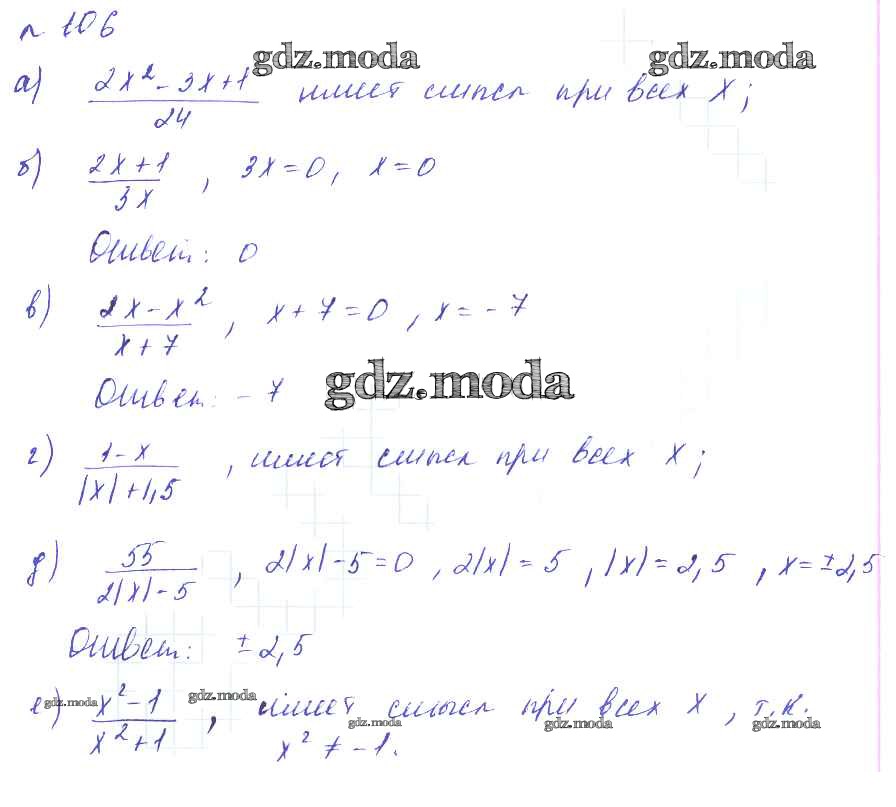 n 106
gdz.moda gdz.moda
а) (2x² - 3x + 1)/24 имеет смысл при всех x;
б) (2x + 1)/(3x), 3x = 0, x = 0
Ответ: 0
в) (2x - x²)/(x + 7), x + 7 = 0, x = -7
gdz.moda
Ответ: -7
г) (1 - x)/(|x| + 1,5), имеет смысл при всех x;
д) 55/(2|x| - 5), 2|x| - 5 = 0, 2|x| = 5, |x| = 2,5, x = ±2,5
Ответ: ±2,5
gdz.moda gdz.moda
е) (x² - 1)/(x² + 1), имеет смысл при всех x, т.к.
gdz.moda gdz.moda gdz.moda
x² ≠ -1.